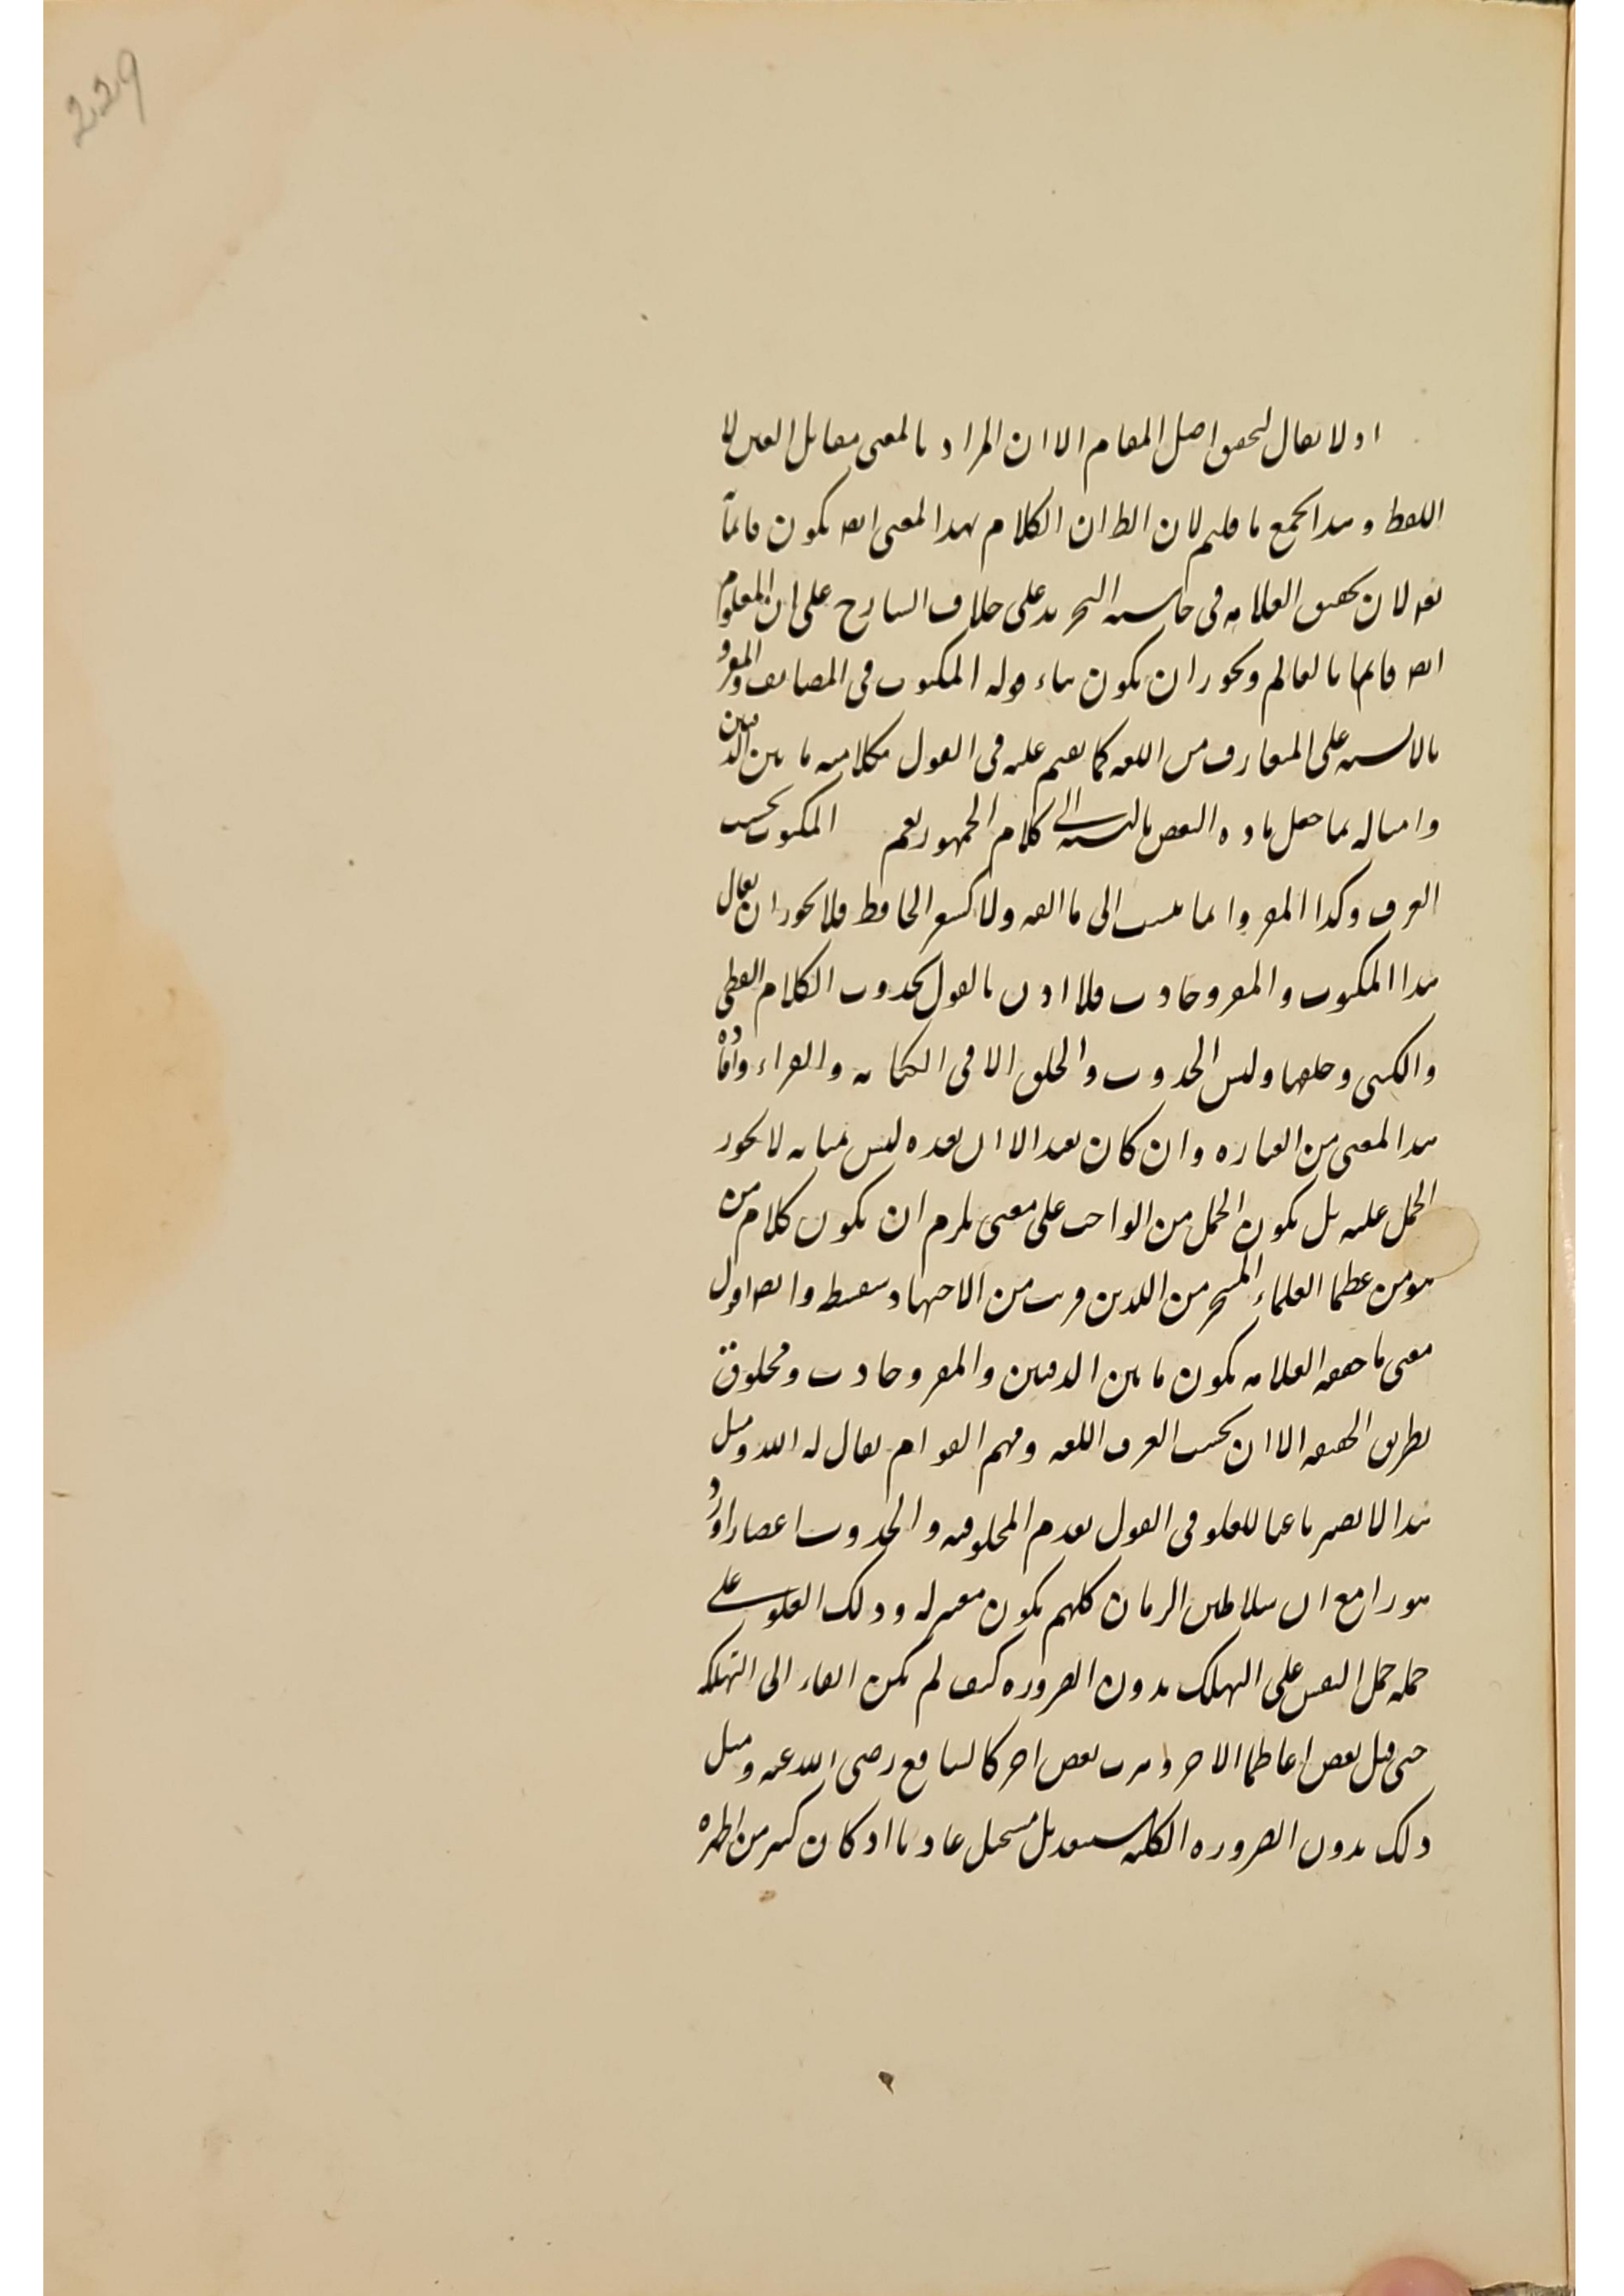 229
اذ لا يقال لتحقق اصل المقام الا ان المراد بالمعنى مقابل العين لا
اللفظ و هذا يجمع ما قلتم لان الظ ان الكلام بهذا المعنى ايضا يكون قائماً
لان تحقيق العلامه فى حاشيه التجريد على خلاف الشارح على ان المعلوم
ايضا قائما بالعالم ويجوز ان يكون بناء قوله المكتوب فى المصاحف والمقرو
بالالسنه على المتعارف من اللغه كما يفهم عليه فى القول بكلاميه ما بين الدفتين
وامثاله مما جعل ماده النقص بالنسبه الى كلام الجمهور نعم المكتوب بحسب
العرف وكذا المقرو انما ينسب الى ما الفه ولا كشعر الحافظ فلا يجوز ان يقال
هذا المكتوب والمقرو حادث فلا اذن بالقول بحدوث الكلام اللفظى
والكتبى وخلقها وليس الحدوث والخلق الا فى الكتابه والقراء وافاده
هذا المعنى من العباره وان كان بعيدا الا ان بعده ليس بمثابه لا يجوز
الحمل عليه بل يكون الحمل من الواجب على معنى يلزم ان يكون كلام من
هو من عظما العلماء المتبحرين الذين قربت من الاجتهاد سفسطه وايضا اقول
معنى ما حققه العلامه يكون ما بين الدفتين والمقرو حادث ومخلوق
بطريق الحقيقه الا ان بحسب العرف اللغه وفهم العوام يقال له الله ومثل
هذا لا يصير باعثا للغلو فى القول بعدم المخلوقيه والحدوث اعصارا ودهورا
مع ان سلاطين الزمان كلهم يكون معتزله وذلك الغلو على
جمله حمل النفس على التهلك بدون الضروره كيف لم يكن القاء الى التهلكه
حتى قتل بعض اعاظما الاخر و هرب بعض اخر كالشافع رضى الله عنه ومثل
ذلك بدون الضروره الكليه مستبعد بل مستحيل عاديا اذ كان كثير من